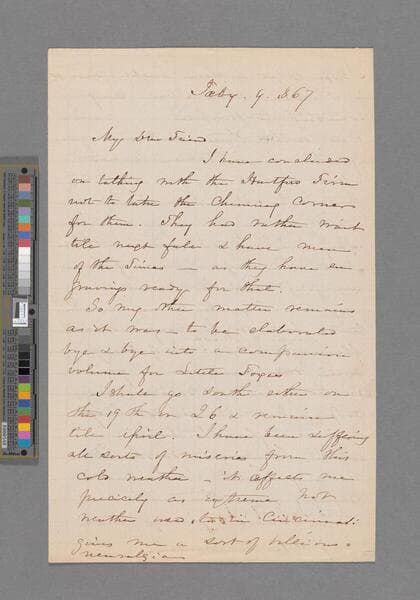 Feby. 9. 1867
My Dear Friend
I have concluded
on talking with the Hartford Firm
not to take the Chimney Corner
for them. They had rather wait
till next fall & have men
of the Times — as they have en
gravings ready for that.
So my other matter remains
as it was — to be elaborated
bye & bye into a companion
volume for Little Foxes
I shall go south either on
the 19th or 26 & remain
till April. I have been suffering
all sorts of miseries from this
cold weather — it affects me
precisely as extreme hot
weather used to in Cincinnati
gives me a sort of bilious
neuralgia